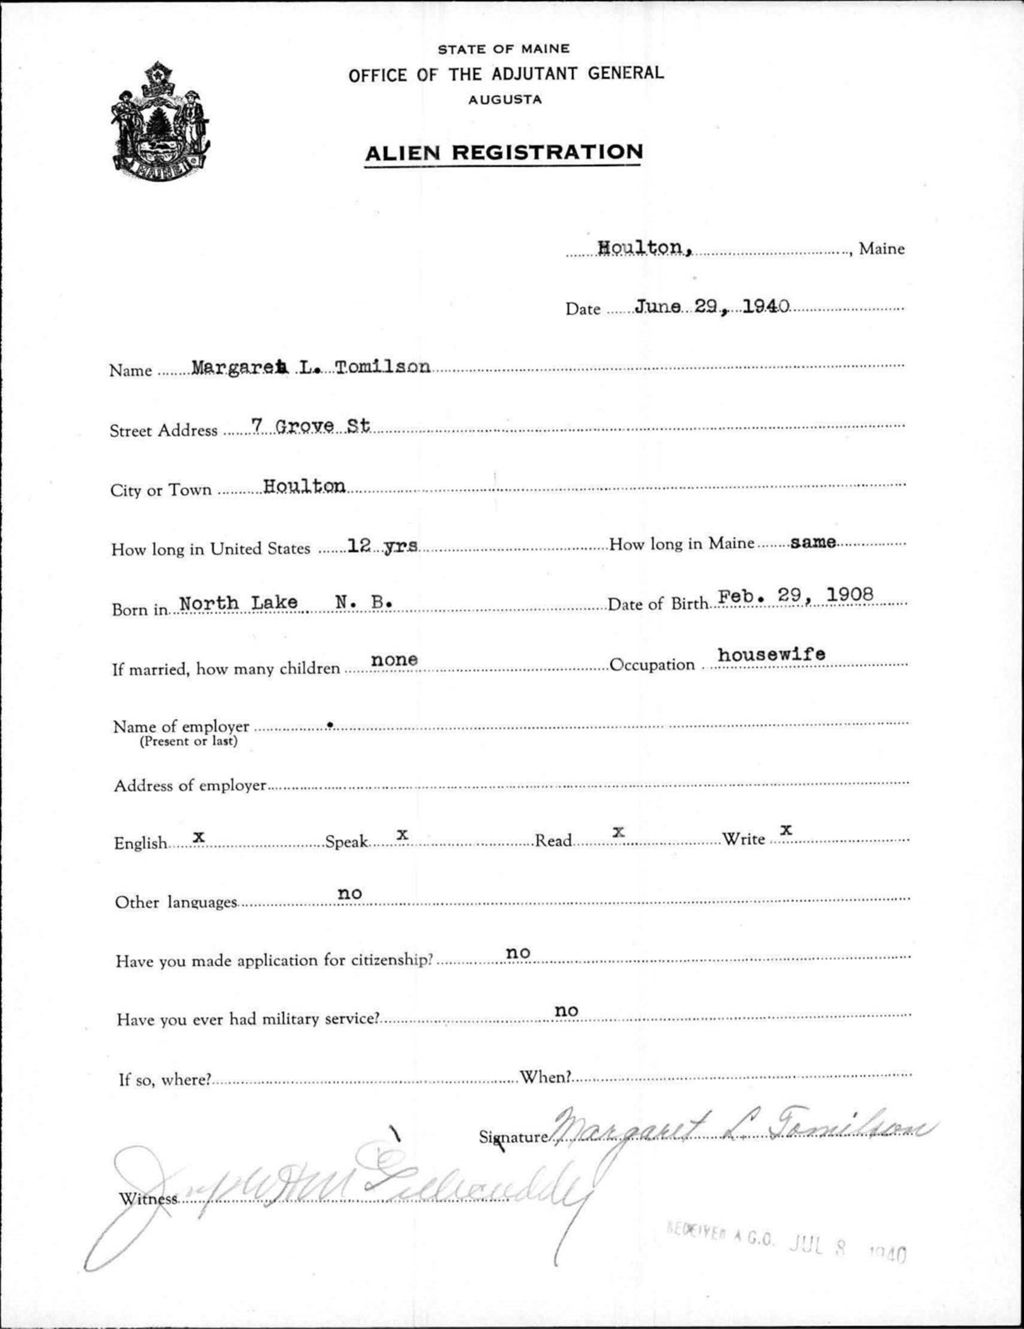 STATE OF MAINE
OFFICE OF THE ADJUTANT GENERAL
AUGUSTA
ALIEN REGISTRATION
MAINE
Houlton, , Maine
Date June 29, 1940
Name Margaret L. Tomilson
Street Address 7 Grove St
City or Town Houlton
How long in United States 12 yrs How long in Maine same
Born in North Lake N. B. Date of Birth Feb. 29, 1908
If married, how many children none Occupation housewife
Name of employer .
(Present or last)
Address of employer
English x Speak x Read x Write x
Other languages no
Have you made application for citizenship? no
Have you ever had military service? no
If so, where? When?
Signature Margaret L. Tomilson
Witness
RECEIVED A.G.O. JUL 8 1940